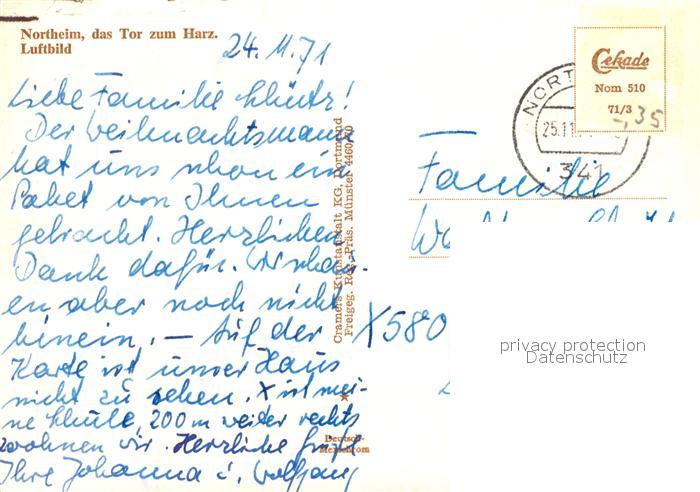 Northeim, das Tor zum Harz.
Luftbild
24.11.71
Liebe Familie Schütz!
Der Weihnachtsmann
hat uns schon ein
Paket von Ihnen
gebracht. Herzlichen
Dank dafür. Wir schau-
en aber noch nicht
hinein. – Auf der
Karte ist unser Haus
nicht zu sehen. X ist mei-
ne Schule, 200 m weiter rechts
wohnen wir. Herzliche Grüße
Ihre Johanna u. Wolfgang
Cramers Kunstanstalt KG, Dortmund
Freigeg. Reg.-Präs. Münster 4460/70
Cekade
Nom 510
71/3
-,35
NORT
25.11
341
Familie
X580
privacy protection
Datenschutz